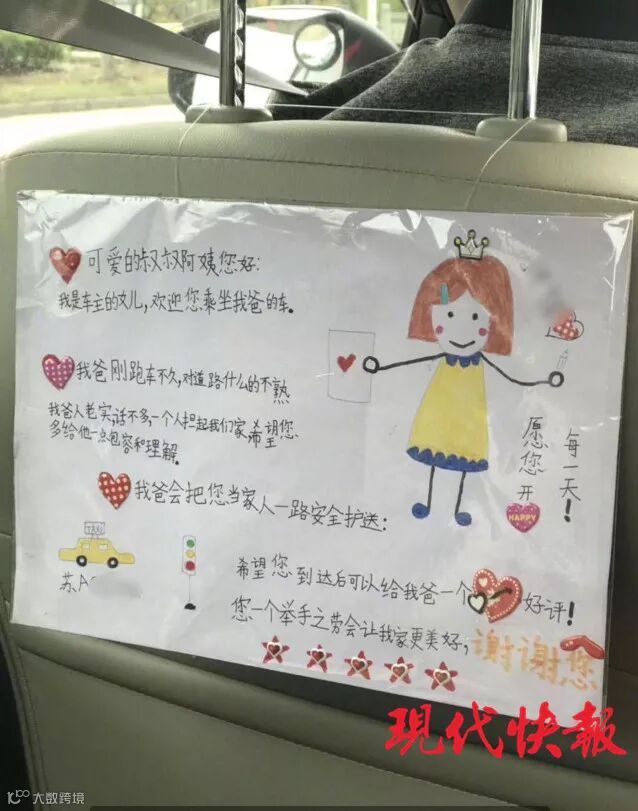 可爱的叔叔阿姨您好:
我是车主的女儿,欢迎您乘坐我爸的车。
我爸刚跑车不久,对道路什么的不熟
我爸人老实,话不多,一个人担起我们家希望您
多给他一点包容和理解。
我爸会把您当家人一路安全护送:
愿您开
HAPPY
每一天!
TAXI
苏A
希望您到达后可以给我爸一个好评!
您一个举手之劳会让我家更美好,谢谢您
现代快報
大数跨境